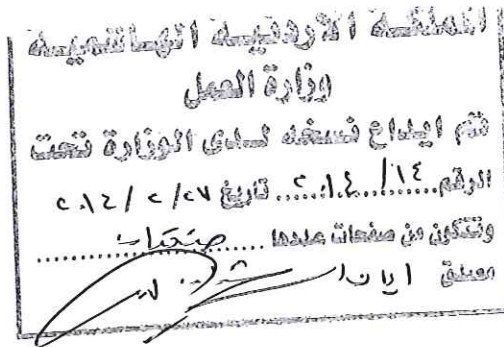 المملكة الأردنية الهاشمية
وزارة العمل
تم ايداع نسخه لدى الوزارة تحت
الرقم ١٤/٢٠١٤ تاريخ ٢٧/٢/٢٠١٤
وتتكون من صفحات عددها صفحتان
مصدق